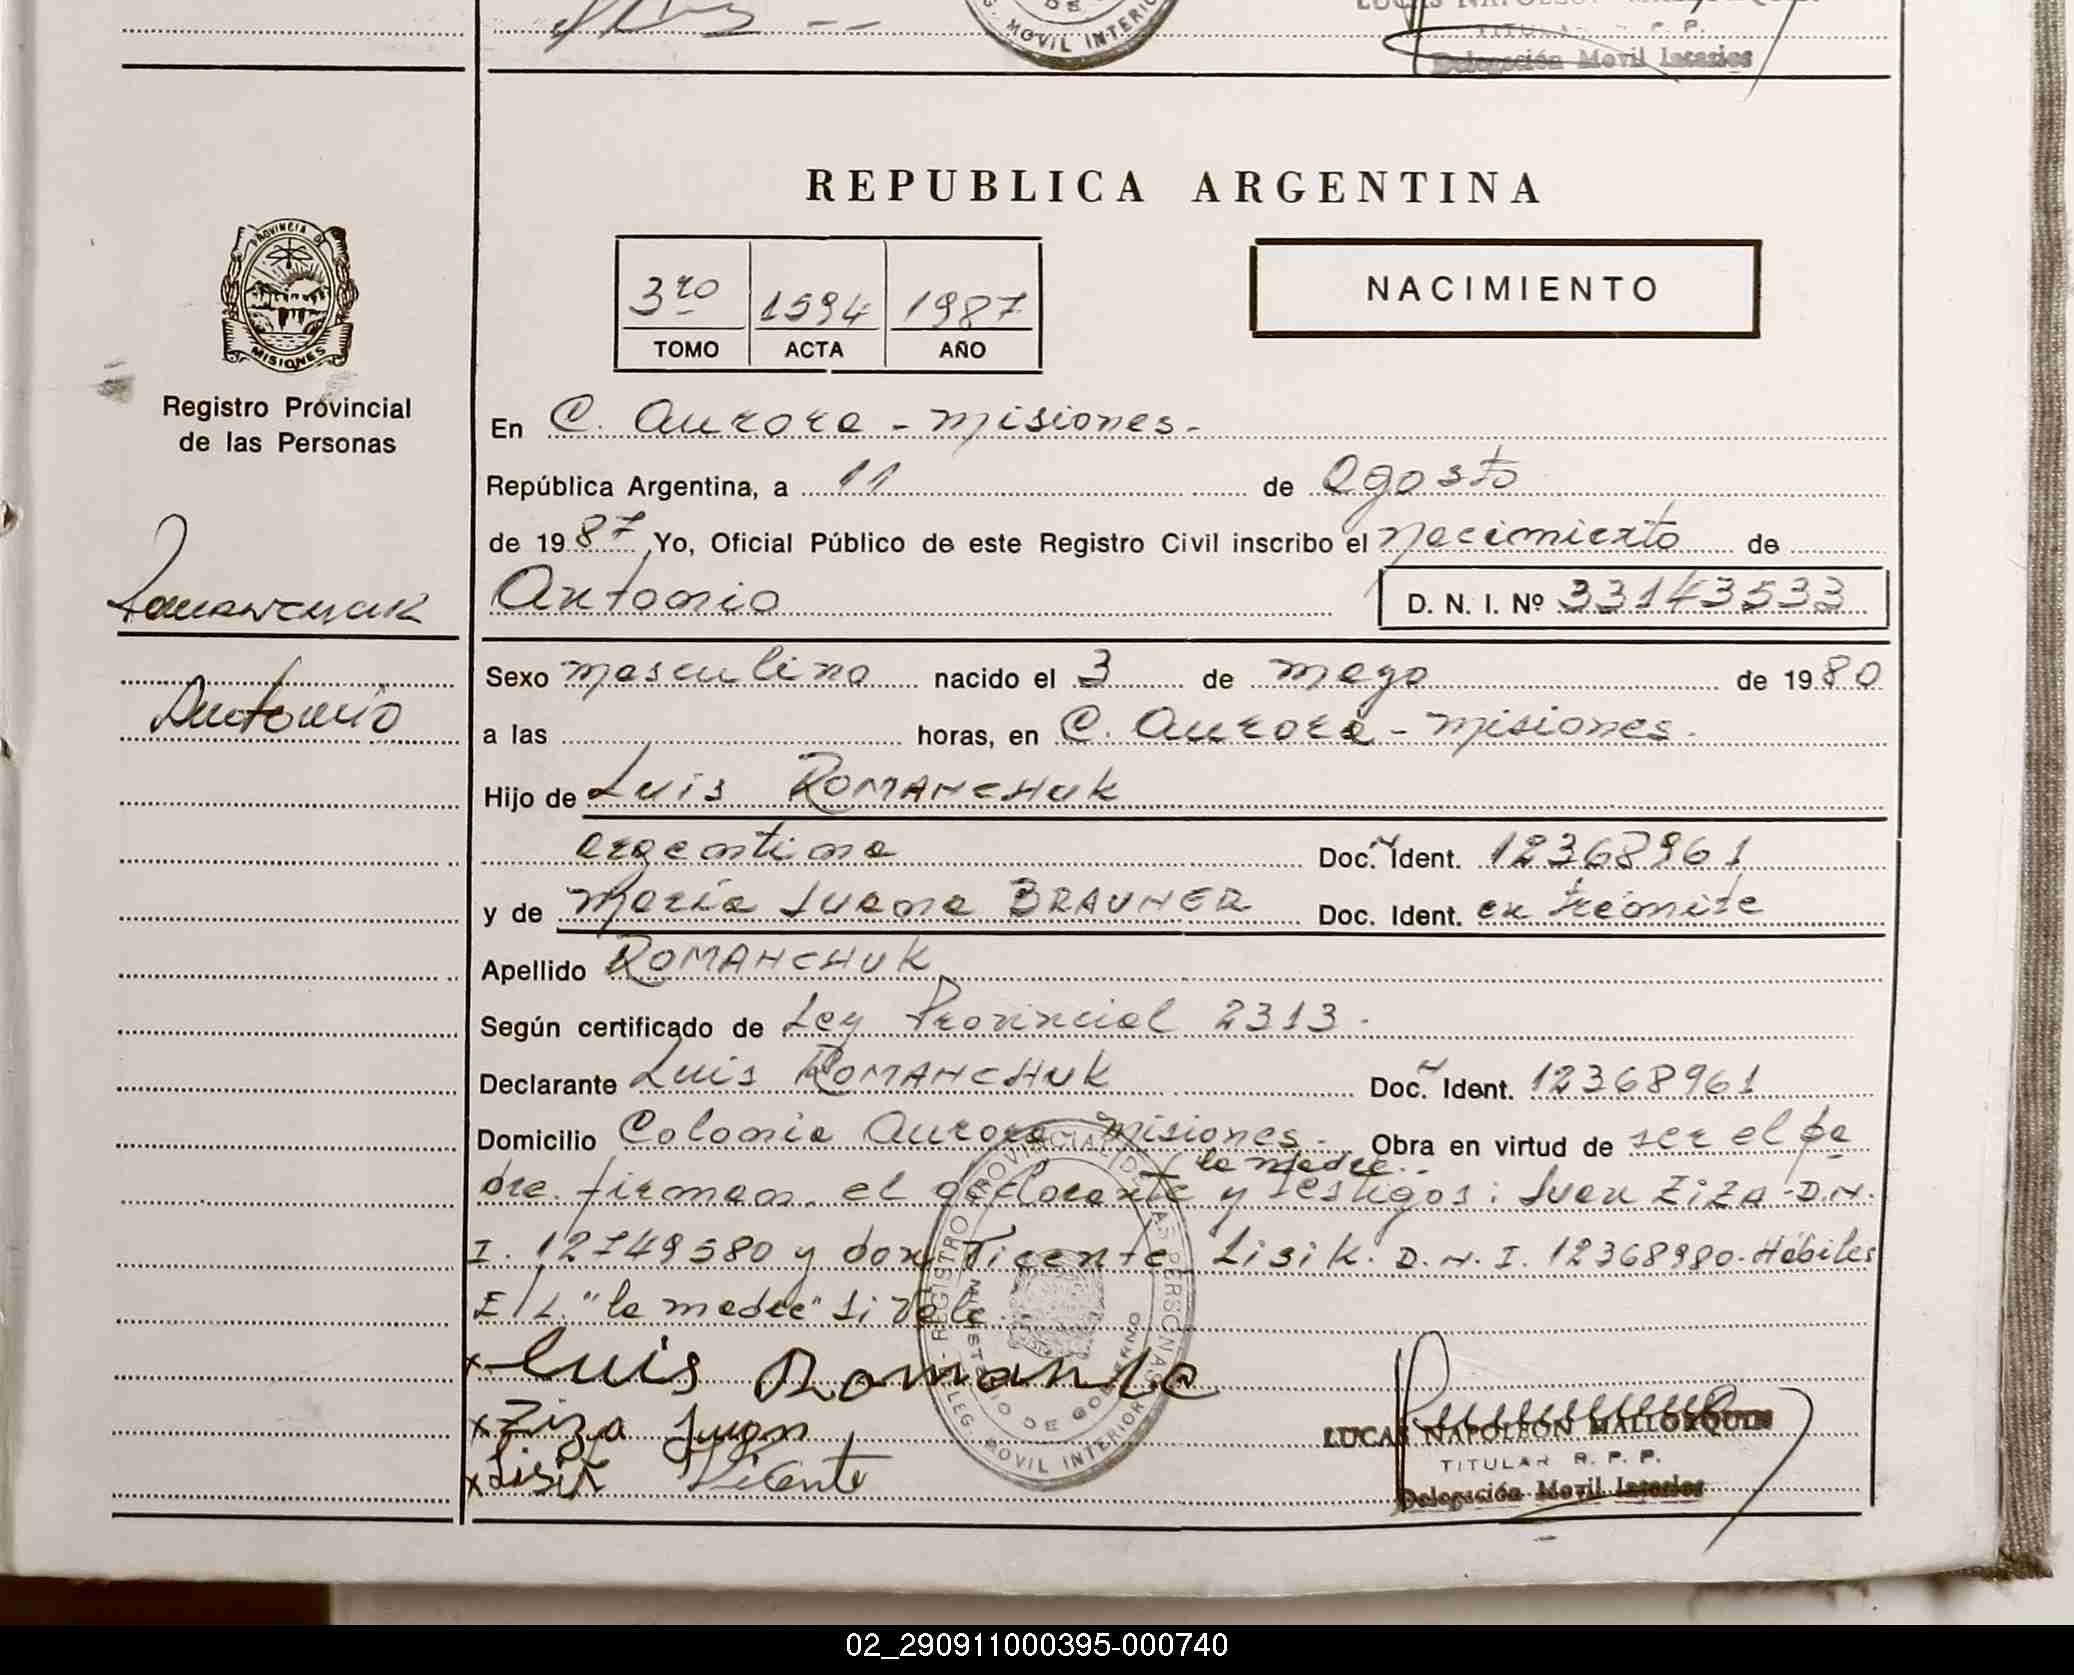 MOVIL INTERIO
TITULAR R. P. P.
Delegación Movil Interior
REPUBLICA ARGENTINA
PROVINCIA D
MISIONES
Registro Provincial
de las Personas
3ro 1594 1987
TOMO ACTA AÑO
NACIMIENTO
En C. Aurora - Misiones.-
República Argentina, a 11 de Agosto
de 1987 Yo, Oficial Público de este Registro Civil inscribo el Nacimiento de
Antonio D. N. I. Nº 33143533
Antonio
Sexo masculino nacido el 3 de mayo de 1980
a las horas, en C. Aurora - Misiones.
Hijo de Luis ROMANCHUK
argentino Doc. Ident. 12368961
y de María Juana BRAUNER Doc. Ident. en trámite
Apellido ROMANCHUK
Según certificado de Ley Provincial 2313.
Declarante Luis ROMANCHUK Doc. Ident. 12368961
Domicilio Colonia Aurora Misiones.- Obra en virtud de ser el pa
la madre
dre. firman el declarante y testigos: Juan ZIZA - D.N.
I. 12749580 y don Vicente Lisik. D.N.I. 12368980. Hábiles
E/L. "la madre" si vale
x Luis
x Ziza Juan
x Lisik Vicente
REGISTRO PROVINCIAL DE LAS PERSONAS
MINISTERIO DE GOBIERNO
DELEG. MOVIL INTERIOR
LUCAS NAPOLEON MALLORQUIN
TITULAR R. P. P.
Delegación Movil Interior
02_290911000395-000740